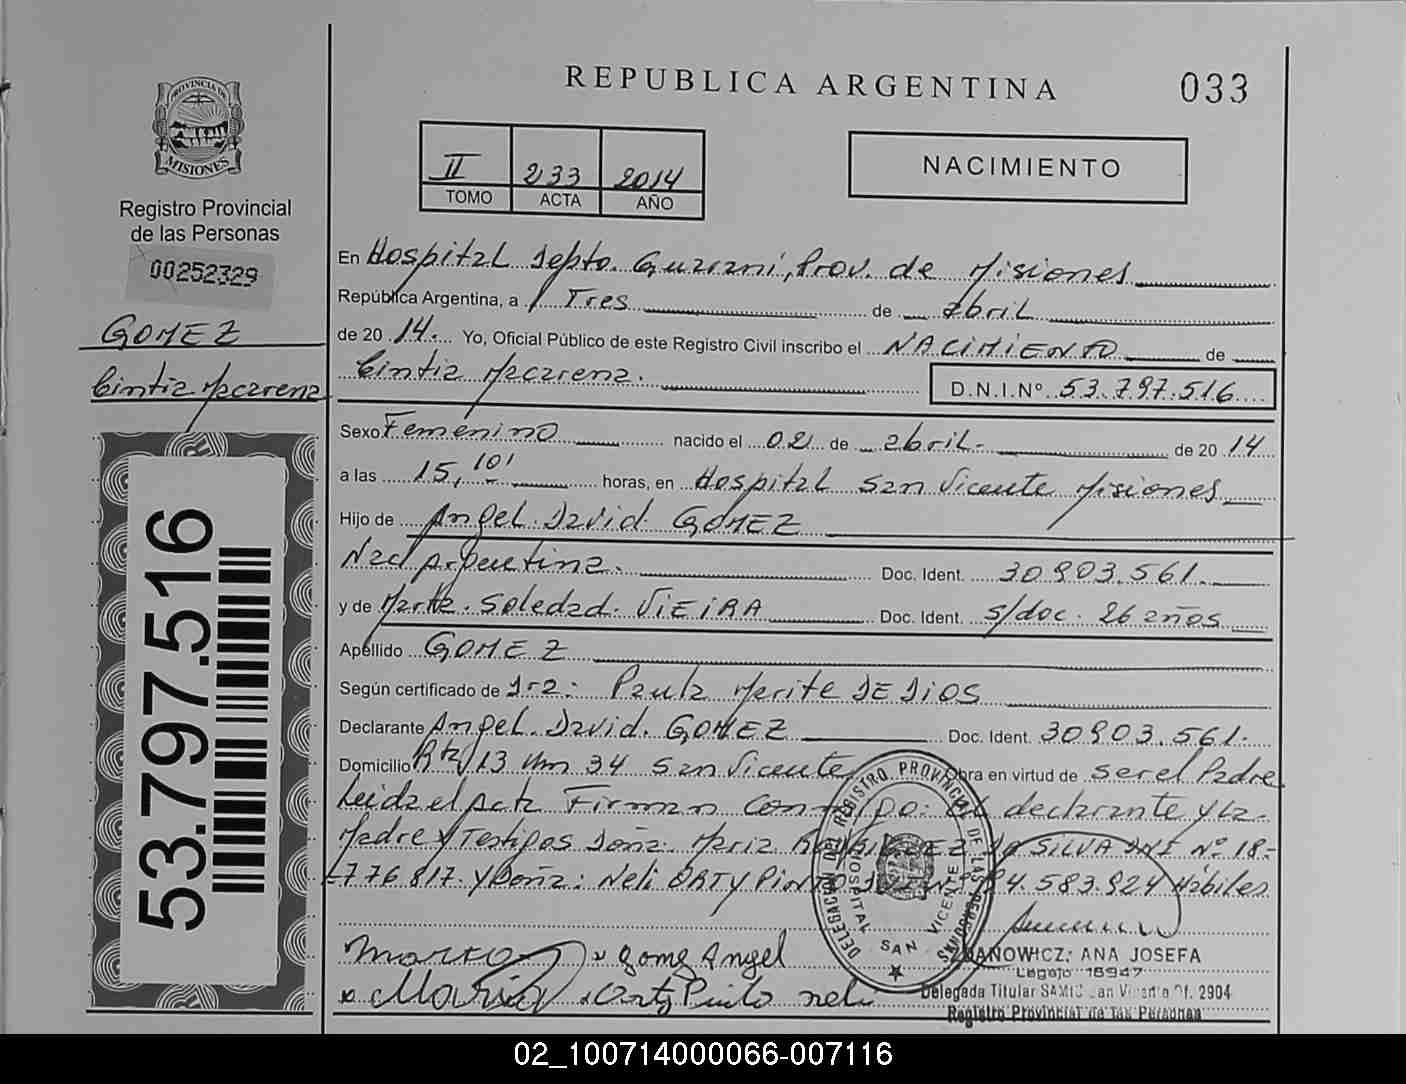 REPUBLICA ARGENTINA
033
PROVINCIA DE
MISIONES
Registro Provincial
de las Personas
00252329
GOMEZ
Cintia Macarena
53.797.516
II 233 2014
TOMO ACTA AÑO
NACIMIENTO
En Hospital Depto. Guarani, Prov. de Misiones
República Argentina, a Tres de abril
de 20 14. Yo, Oficial Público de este Registro Civil inscribo el NACIMIENTO de
Cintia Macarena. D.N.I.Nº 53.797.516
Sexo Femenino nacido el 02 de abril. de 20 14
a las 15,10' horas, en Hospital San Vicente Misiones
Hijo de Angel David GOMEZ
Nac Argentina. Doc. Ident. 30903.561.
y de Marta Soledad VIEIRA Doc. Ident. s/doc. 26 años
Apellido GOMEZ
Según certificado de Dra: Paula Marite DE DIOS
Declarante Angel David GOMEZ Doc. Ident. 30903.561.
Domicilio Rta/13 Km 34 San Vicente Obra en virtud de ser el Padre
Leida el Acta Firman Conmigo: el declarante y la
Madre y Testigos Doña: Maria DA SILVA DNI Nº 18-
776.817. y Doña: Neli ORTY PINTO 583.924 Hábiles
DELEGACION DEL REGISTRO PROVINCIAL DE LAS PERSONAS
HOSPITAL SAN VICENTE
Gome Angel
Maria
Pinto neli
ANA JOSEFA
Legajo 18947
Delegada Titular SAMIC San Vicente Of. 2904
Registro Provincial de las Personas
02_100714000066-007116